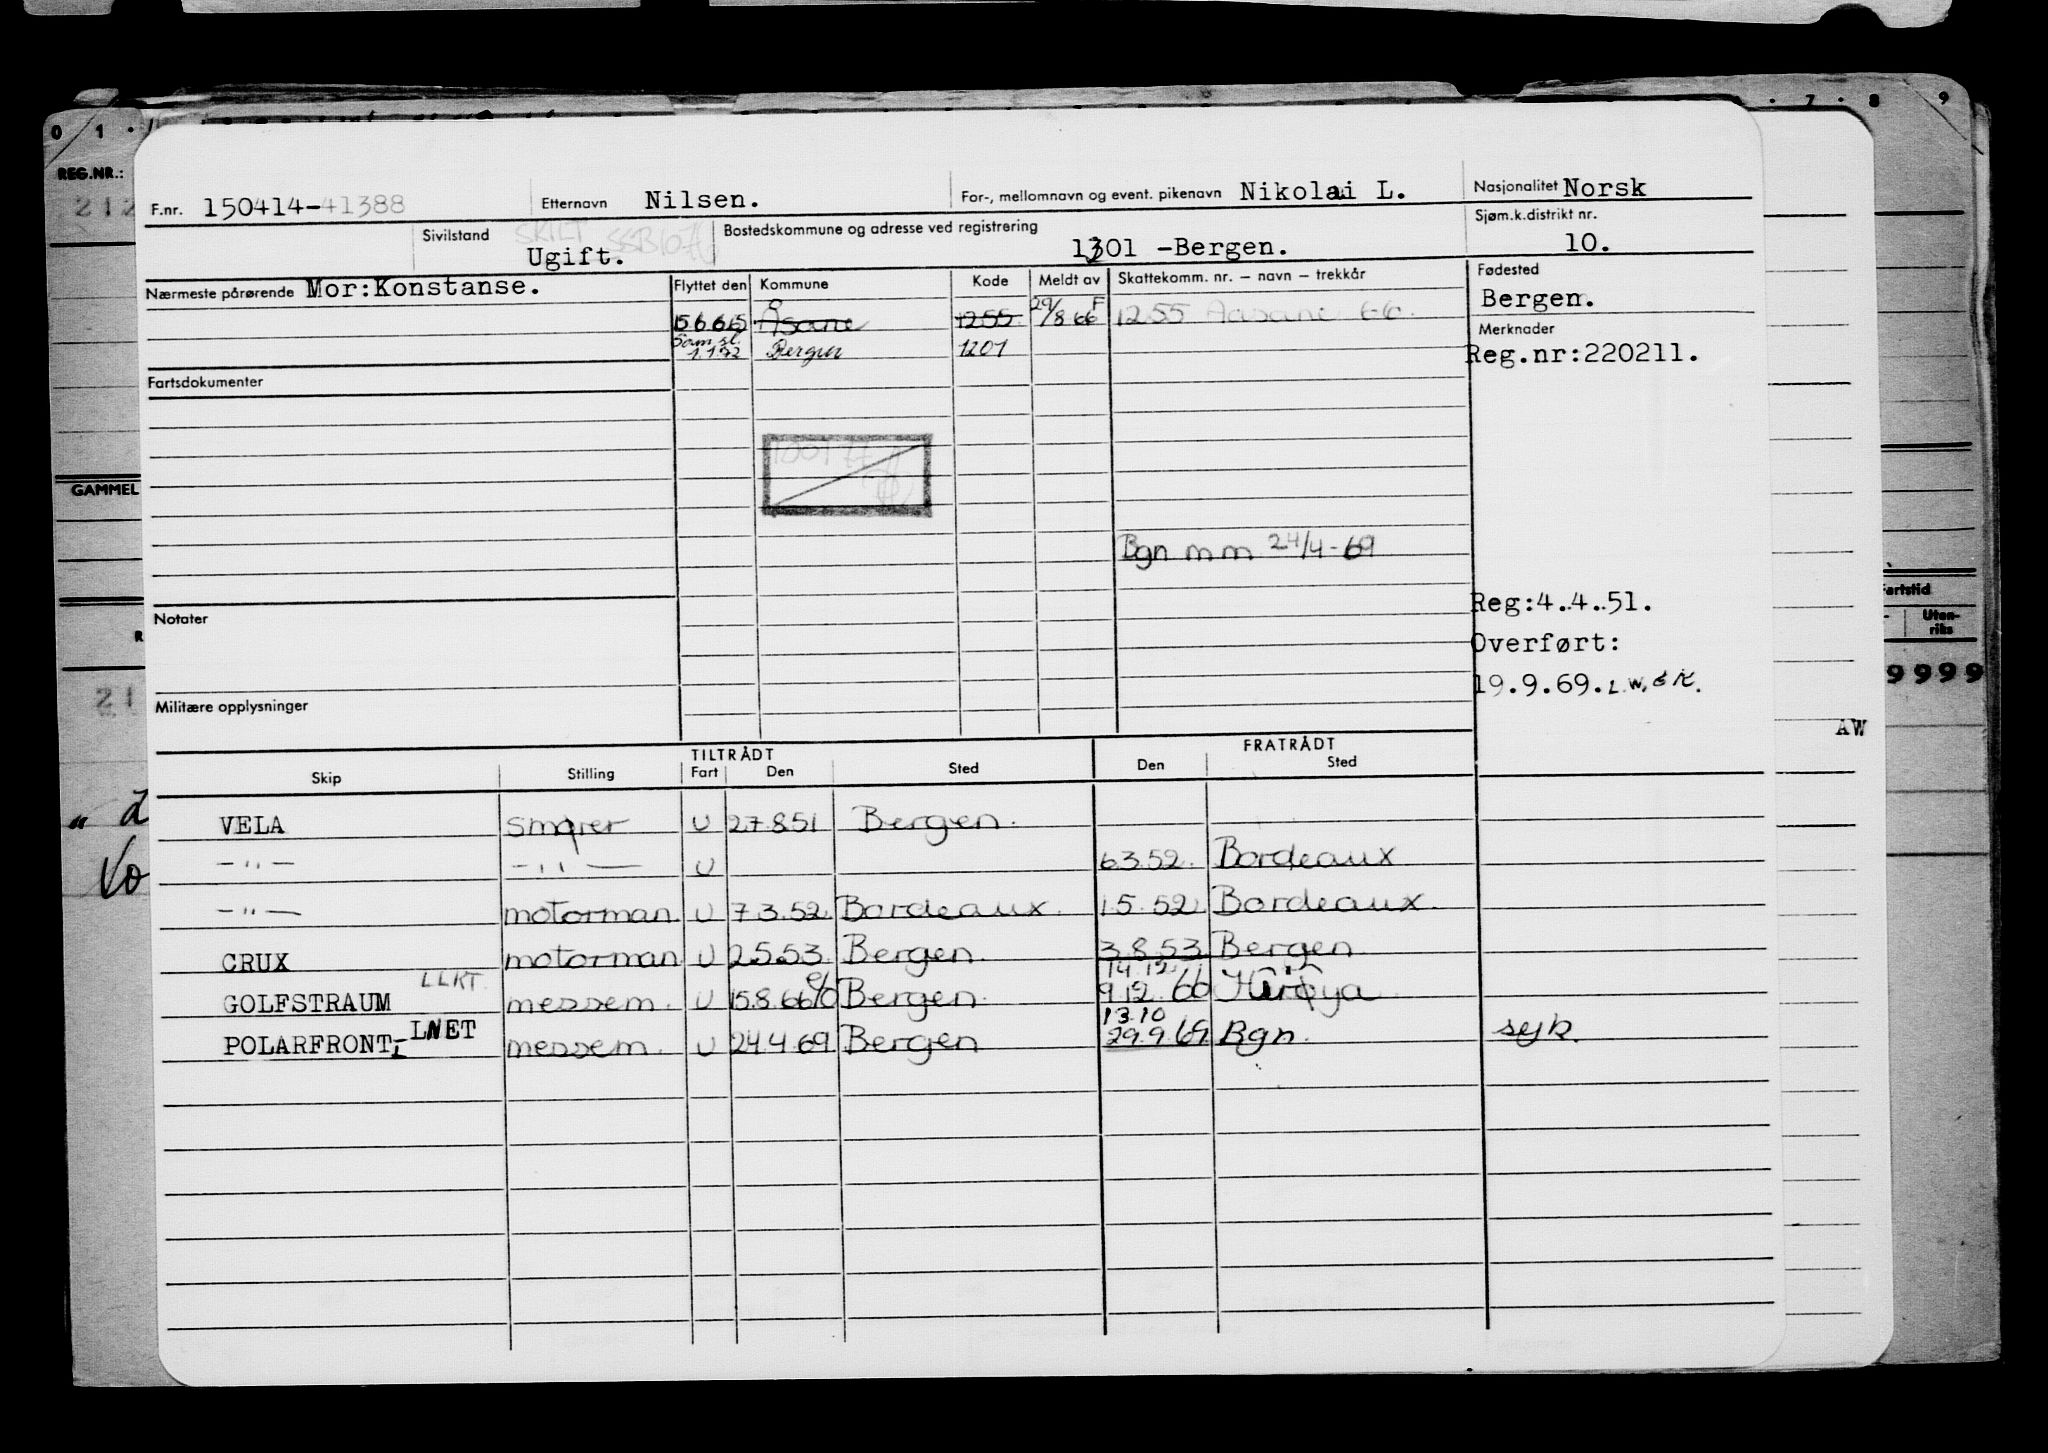 0 1 · 7 · 8 9
REG.NR.:
212
F.nr. 150414-41388 Etternavn Nilsen. For-, mellomnavn og event. pikenavn Nikolai L. Nasjonalitet Norsk
Sivilstand SKILT Ugift. Bostedskommune og adresse ved registrering 1301 -Bergen. Sjøm.k.distrikt nr. 10.
Nærmeste pårørende Mor:Konstanse. Flyttet den Kommune Kode Meldt av Skattekomm. nr. – navn – trekkår Fødested
Bergen.
15665 Åsane 1255 29/8 66 F 1255 Aasane 66
Merknader
Sam.sl. 1.1.72 Bergen 1201
Reg.nr:220211.
Fartsdokumenter
GAMMEL
Bgn mm 24/4-69
Reg:4.4.51.
Notater
Overført:
19.9.69. L.W,
Militære opplysninger
artstid
Uten-
riks
9999
AW
21
TILTRÅDT FRATRÅDT
Skip Stilling Fart Den Sted Den Sted
VELA smører U 27.8.51 Bergen.
-"- -"- U 6.3.52. Bordeaux
-"- motorman U 7.3.52 Bordeaux. 1.5.52 Bordeaux.
CRUX motorman U 2.5.53 Bergen. 3.8.53 Bergen
GOLFSTRAUM LLKT. messem. U 15.8.66 Bergen. 14.12 9.12.66 Herøya
POLARFRONT I-LNET messem. U 24.4.69 Bergen 13.10 29.9.69 Bgn. syk.